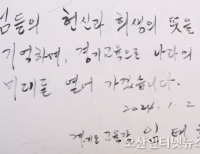 님들의 헌신과 희생의 뜻을
기억하며, 경기교육으로 나라의
미래를 열어 가겠습니다.
2024. 1. 2
경기도교육감 임태